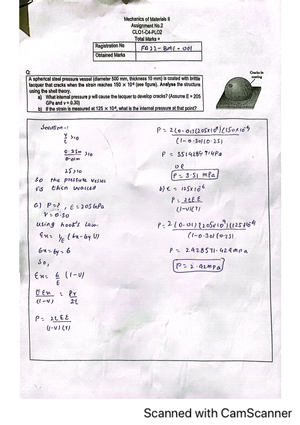 Mechanics of Materials II
Assignment No.2
CLO1-C4-PLO2
Total Marks =
Registration No
FA22-BME-001
Obtained Marks
Q:
A spherical steel pressure vessel (diameter 500 mm, thickness 10 mm) is coated with brittle
lacquer that cracks when the strain reaches 150 × 10⁻⁶ (see figure). Analyse the structure
using the shell theory.
a) What internal pressure p will cause the lacquer to develop cracks? (Assume E = 205
GPa and v = 0.30)
b) If the strain is measured at 125 × 10⁻⁶, what is the internal pressure at that point?
Cracks in
coating
Solution:-
r/t >10
0.25m/0.01m >10
25>10
So the pressure vessel
is thin walled
a) P=?, E=205GPa
V=0.30
using hook's law
εx= 1/E (6x-6yV)
6x=6y=6
So,
εx= 6/E (1-V)
P= 2tEε
(1-V)(r)
P=2(0.01)(205x10⁹)(150x10⁻⁶)
(1-0.30)(0.25)
P= 3514285.714Pa
OR
P=3.51 MPa
b) ε = 125x10⁻⁶
P= 2tEε
(1-V)(r)
P=2(0.01)(205x10⁹)(125x10⁻⁶)
(1-0.30)(0.25)
P= 2928571.429Pa
P=2.92MPa
Scanned with CamScanner